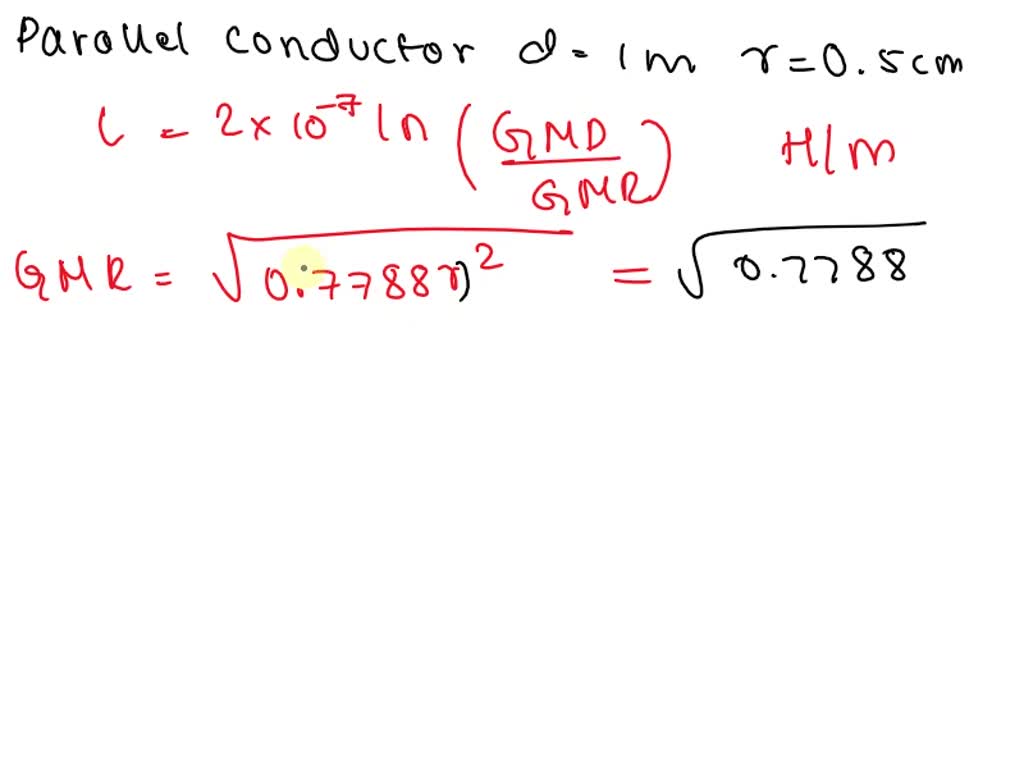 Parallel conductor d = 1 m r = 0.5 cm
L = 2 × 10⁻⁷ ln (GMD/GMR) H/m
GMR = √0.7788r)² = √0.7788